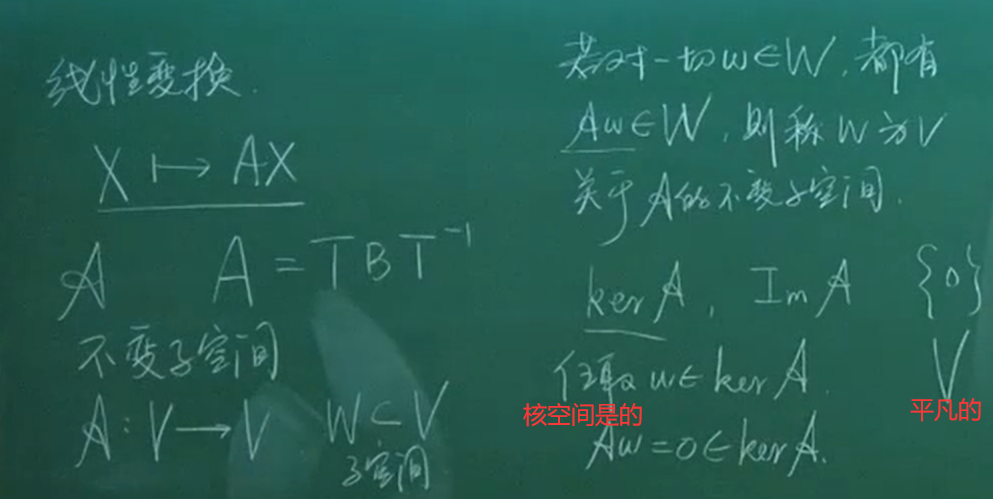 线性变换.
X ↦ AX
𝒜 A = TBT⁻¹
不变子空间
𝒜: V → V W ⊂ V
子空间
若对一切w∈W, 都有
𝒜w∈W, 则称W为V
关于𝒜的不变子空间.
ker𝒜, Im𝒜 {0}
任取w∈ker𝒜. V
核空间是的 平凡的
𝒜w=0∈ker𝒜.